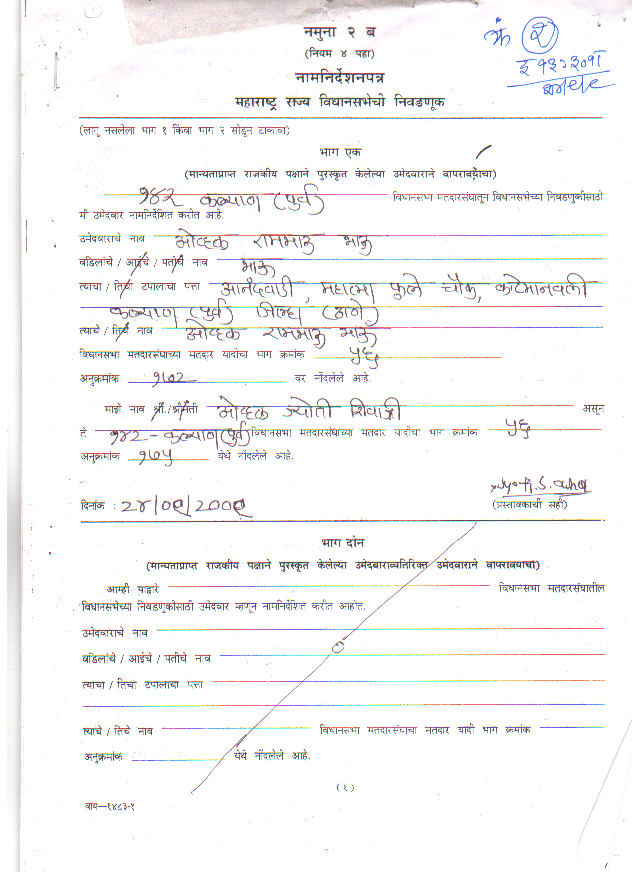 नमुना २ ब
(नियम ४ पहा)
नामनिर्देशनपत्र
महाराष्ट्र राज्य विधानसभेची निवडणूक
क्रं २
(लागू नसलेला भाग १ किंवा भाग २ सोडून टाकावा)
भाग एक
(मान्यताप्राप्त राजकीय पक्षाने पुरस्कृत केलेल्या उमेदवाराने वापरावयाचा)
१४२ कल्याण (पुर्व) विधानसभा मतदारसंघातून विधानसभेच्या निवडणुकीसाठी
मी उमेदवार नामनिर्देशित करीत आहे.
उमेदवाराचे नाव ओव्हळ रामभाऊ भाऊ
वडिलांचे / आईचे / पतीचे नाव भाऊ
त्याचा / तिचा टपालाचा पत्ता आनंदवाडी, महात्मा फुले चौक, काटेमानवली
कल्याण (पुर्व) जिल्हा (ठाणे)
त्याचे / तिचे नाव ओव्हळ रामभाऊ भाऊ
विधानसभा मतदारसंघाच्या मतदार यादीचा भाग क्रमांक ५६
अनुक्रमांक वर नोंदलेले आहे.
माझे नाव श्री./श्रीमती ओव्हळ ज्योती शिवाजी असून
ते १४२ - कल्याण (पुर्व) विधानसभा मतदारसंघाच्या मतदार यादीचा भाग क्रमांक ५६
अनुक्रमांक १७५ येथे नोंदलेले आहे.
दिनांक :
(प्रस्तावकाची सही)
भाग दोन
(मान्यताप्राप्त राजकीय पक्षाने पुरस्कृत केलेल्या उमेदवाराव्यतिरिक्त उमेदवाराने वापरावयाचा)
आम्ही याद्वारे विधानसभा मतदारसंघातील
विधानसभेच्या निवडणुकीसाठी उमेदवार म्हणून नामनिर्देशित करीत आहोत.
उमेदवाराचे नाव
वडिलांचे / आईचे / पतीचे नाव
त्याचा / तिचा टपालाचा पत्ता
त्याचे / तिचे नाव विधानसभा मतदारसंघाचा मतदार यादी भाग क्रमांक
अनुक्रमांक येथे नोंदलेले आहे.
(१)
बाय—१४८३-१